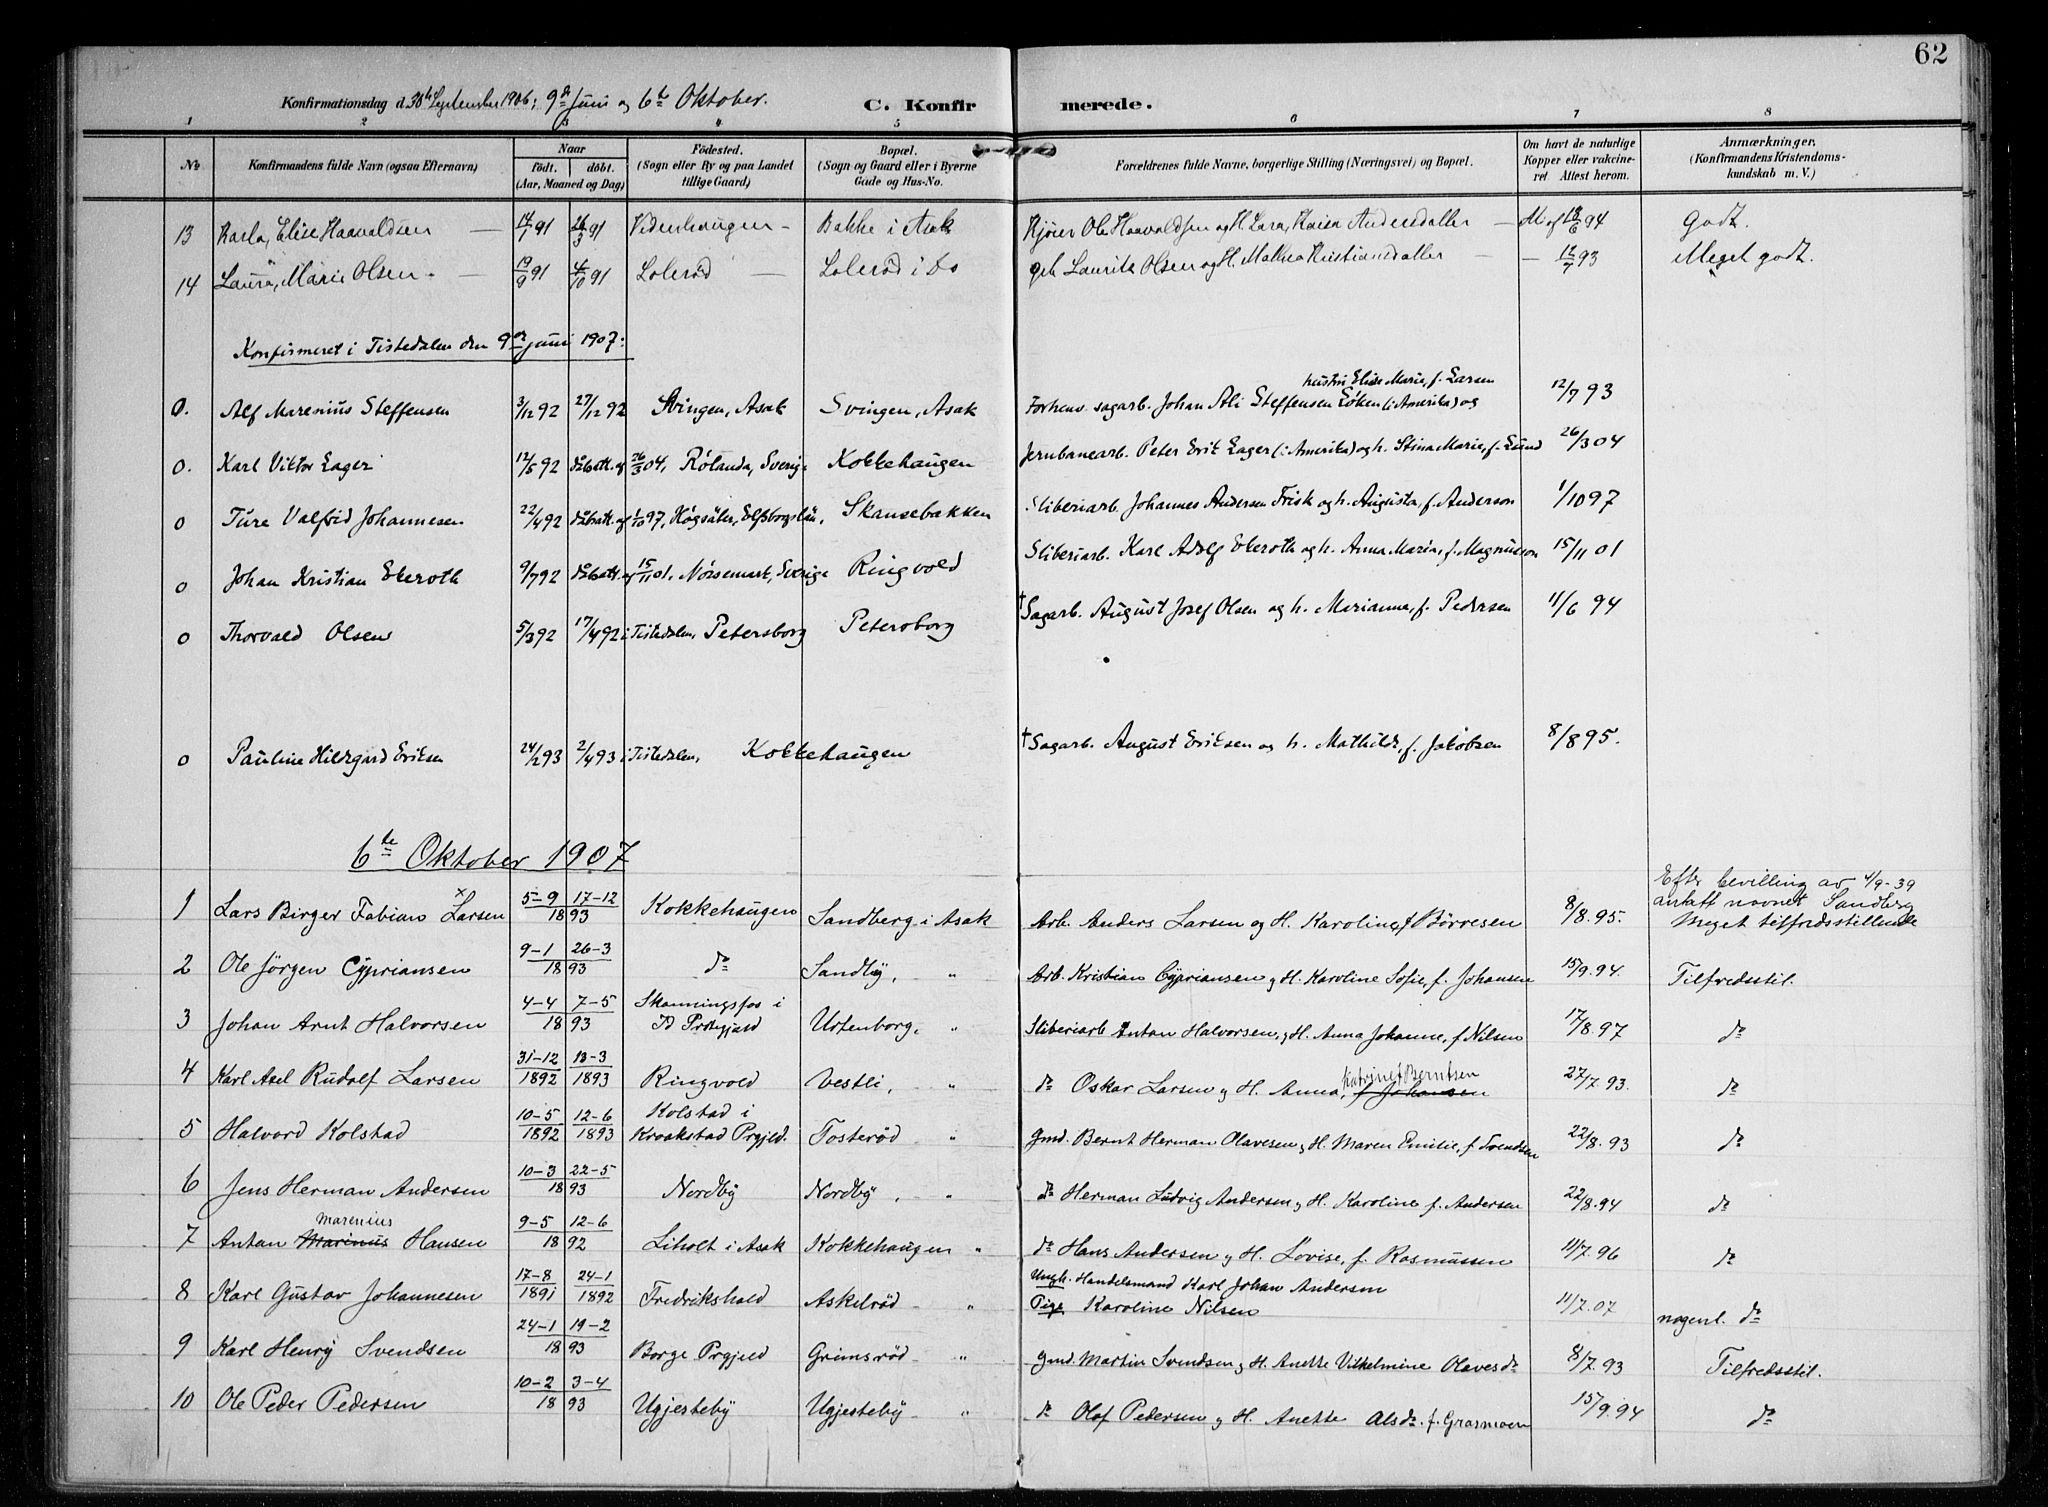 62
Konfirmationsdag d. 30te September 1906; 9de Juni og 6te Oktober.
C. Konfirmerede.
1 2 3 4 5 6 7 8
No
Konfirmandens fulde Navn (ogsaa Efternavn)
Naar
født. døbt.
(Aar, Maaned og Dag)
Fødested.
(Sogn eller By og paa Landet
tillige Gaard)
Bopæl.
(Sogn og Gaard eller i Byerne
Gade og Hus-No.
Forældrenes fulde Navne, borgerlige Stilling (Næringsvei) og Bopæl.
Om havt de naturlige
Kopper eller vakcine-
ret. Attest herom.
Anmærkninger.
(Konfirmandens Kristendoms-
kundskab m. V.)
13 Karla, Elise Haavaldsen 14/7 91 26/3 91 Vedenhaugen Bakke i Asak Ole Haavaldsen og H. Lara, Andersdatter 18/6 94 Godt.
14 Laura, Marie Olsen 19/9 91 4/10 91 Lolerød Lolerød i Do Laurits Olsen og H. Mathea Kristiansdatter 12/7 93 Meget godt.
Konfirmeret i Tistedalen den 9de juni 1907:
hustru Elise Marie, f. Larsen
0. Alf Marenius Steffensen 3/12 92 27/12 92 Svingen, Asak Svingen, Asak Forhenv. sagarb. Johan Ali Steffensen Løken (i Amerika) og 12/7 93
0. Karl Viktor Lager 12/5 92 døbsatt. af 26/3 04, Rølanda, Sverige Kokkehaugen Jernbanearb. Peter Erik Lager (i Amerika) og h. Stina Marie, f. Lund 26/3 04
0 Ture Valfrid Johannesen 22/4 92 døbsatt. af 1/10 97, Høgsäter, Elfsborgslän, Skansebakken Sliberiarb. Johannes Andersen Frisk og h. Augusta, f. Anderson 1/10 97
0 Johan Kristian Ekeroth 9/7 92 døbsatt. af 15/11 01, Nørsemark, Sverige Ringvold Sliberiarb. Karl Adolf Ekeroth og h. Anna Maria, f. Magnusson 15/11 01
0 Thorvald Olsen 5/3 92 17/4 92 i Tistedalen, Petersborg Petersborg † Sagarb. August Josef Olsen og h. Marianne, f. Pedersen 11/6 94
0 Pauline Hildegard Eriksen 24/1 93 2/4 93 i Tistedalen, Kokkehaugen † Sagarb. August Eriksen og h. Mathilde, f. Jakobsen 8/8 95.
6te Oktober 1907
Efter bevilling av 4/9-39
antatt navnet Sandberg
1 Lars Birger Fabian × Larsen 5-9 17-12 1893 Kokkehaugen Sandberg i Asak Arb. Anders Larsen og H. Karoline, f. Børresen 8/8.95. Meget tilfredsstillende
2 Ole Jørgen Cypriansen 9-1 26-3 1893 do Sandby, " Arb. Kristian Cypriansen og H. Karoline Sofie, f. Johansen 15/9.94. Tilfredsstil.
3 Johan Arnt Halvorsen 4-4 7-5 1893 Skanningsfos i Id Prstgjæld Urtenborg, " Sliberiarb Antan Halvorsen, og H. Anna Johanne, f. Nilsen 17/8.97 do
4 Karl Axel Rudolf Larsen 31-12 1892 13-3 1893 Ringvold Vestli, " do Oskar Larsen og H. Anna, Katrine f Berntsen f Johansen 27/7.93. do
5 Halvord Kolstad 10-5 1892 12-6 1893 Kolstad i Kraakstad Prgjeld. Tosterød " Gmd. Bernt Herman Olavesen og H. Maren Emilie, f. Svendsen 22/8.93 do
6 Jens Herman Andersen 10-3 22-5 1893 Nordby Nordby, " do Herman Ludvig Andersen og H. Karoline f. Andersen 22/8.94 do
7 Antan Marinus Marenius Hansen 9-5 12-6 1892 Liholt i Asak Kokkehaugen " do Hans Andersen og H. Lovise, f. Rasmussen 11/7.96 do
8 Karl Gustav Johannesen 17-8 1891 24-1 1892 Fredrikshald Askelrød " Ungk. Handelsmand Karl Johan Andersen
Pige Karoline Nilsen 11/7.07 nogenl. do
9 Karl Henry Svendsen 24-1 19-2 1893 Borge Prgjeld Grimsrød " Gmd. Martin Svendsen og H. Anette Vilhelmine Olavesdr 8/7.93 Tilfredsstil.
10 Ole Peder Pedersen 10-2 3-4 1893 Ugjesteby Ugjesteby " do Olof Pedersen og H. Anette Alsdr. f. Grasmoen 15/9.94 do